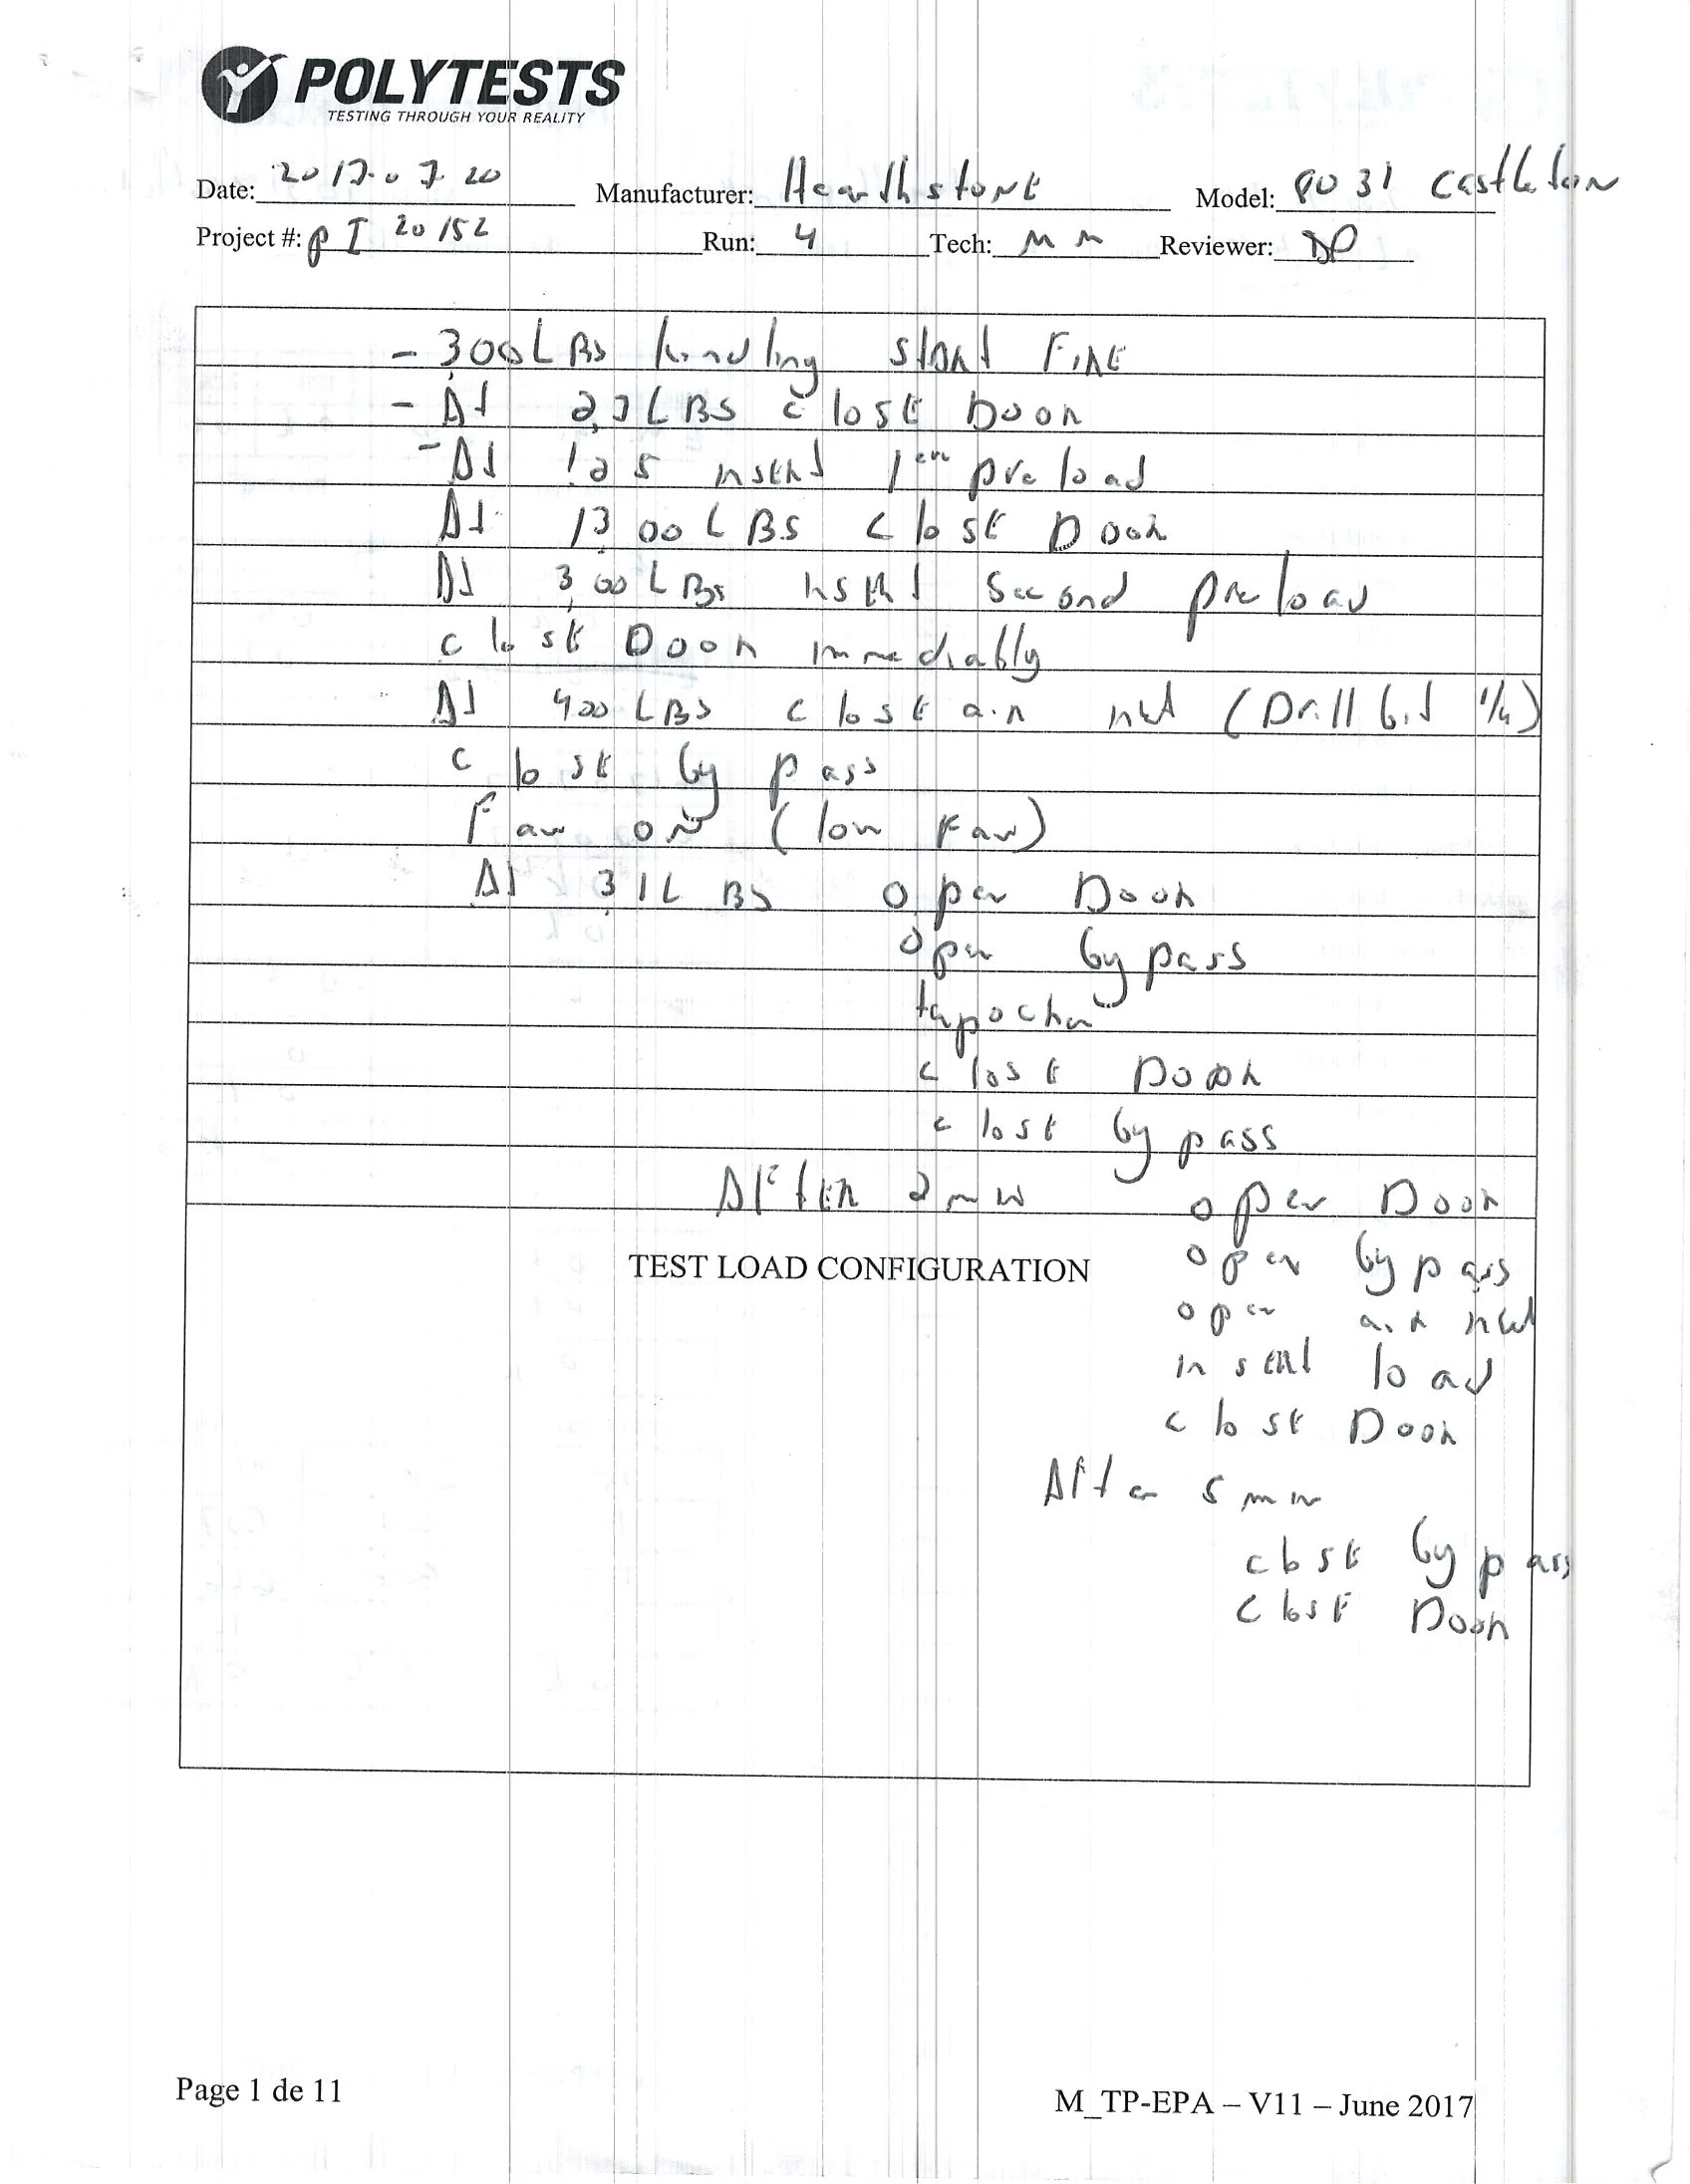 POLYTESTS
TESTING THROUGH YOUR REALITY
Date: 2017.07.20 Manufacturer: HearthstonE Model: 8031 Castleton
Project #: PI 20152 Run: 4 Tech: MM Reviewer: DP
- 3,00 LBS kindling stant FinE
- At 2,7 LBS closE Doon
- At 1,25 insent 1er preload
At 13,00 LBS closE Doon
At 3,00 LBS insent second preload
closE Doon immediably
At 4,00 LBS closE ain inlet (Drill bit 1/4)
closE by pass
Fan oN (low Fan)
At 3,1 LBS open Doon
open by pass
closE Doon
closE by pass
AFten 2 min open Doon
TEST LOAD CONFIGURATION
open by pass
open ain inlet
insent load
closE Doon
AFten 5 min
closE by pass
closE Doon
Page 1 de 11
M_TP-EPA – V11 – June 2017